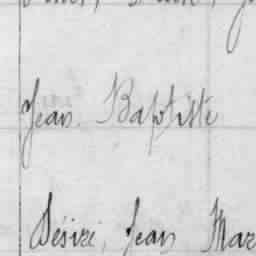 Jean Baptiste
Désiré, Jean Mar